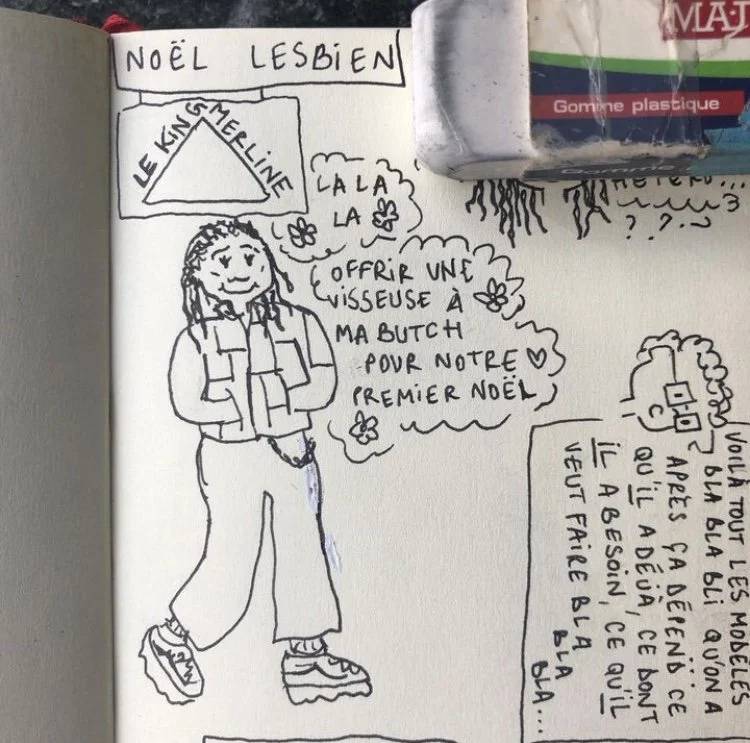 NOËL LESBIEN
LE KING MERLINE
LA LA
LA
OFFRIR UNE
VISSEUSE À
MA BUTCH
POUR NOTRE
PREMIER NOËL
MAJ
Gomme plastique
Gomme
? ? ?
VOILÀ TOUT LES MODÈLES
BLA BLA BLI QU'ON A
...
APRÈS ÇA DÉPEND CE
QU'IL A DÉJÀ, CE DONT
IL A BESOIN, CE QU'IL
VEUT FAIRE BLA
BLA
BLA...